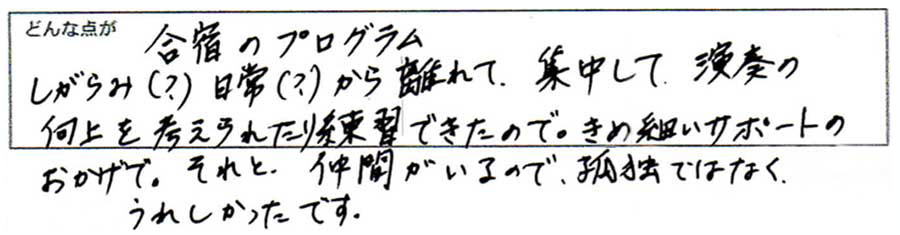 どんな点が
合宿のプログラム
しがらみ(?)日常(?)から離れて、集中して、演奏の
向上を考えられたり練習できたので。きめ細いサポートの
おかげで。それと、仲間がいるので、孤独ではなく、
うれしかったです。